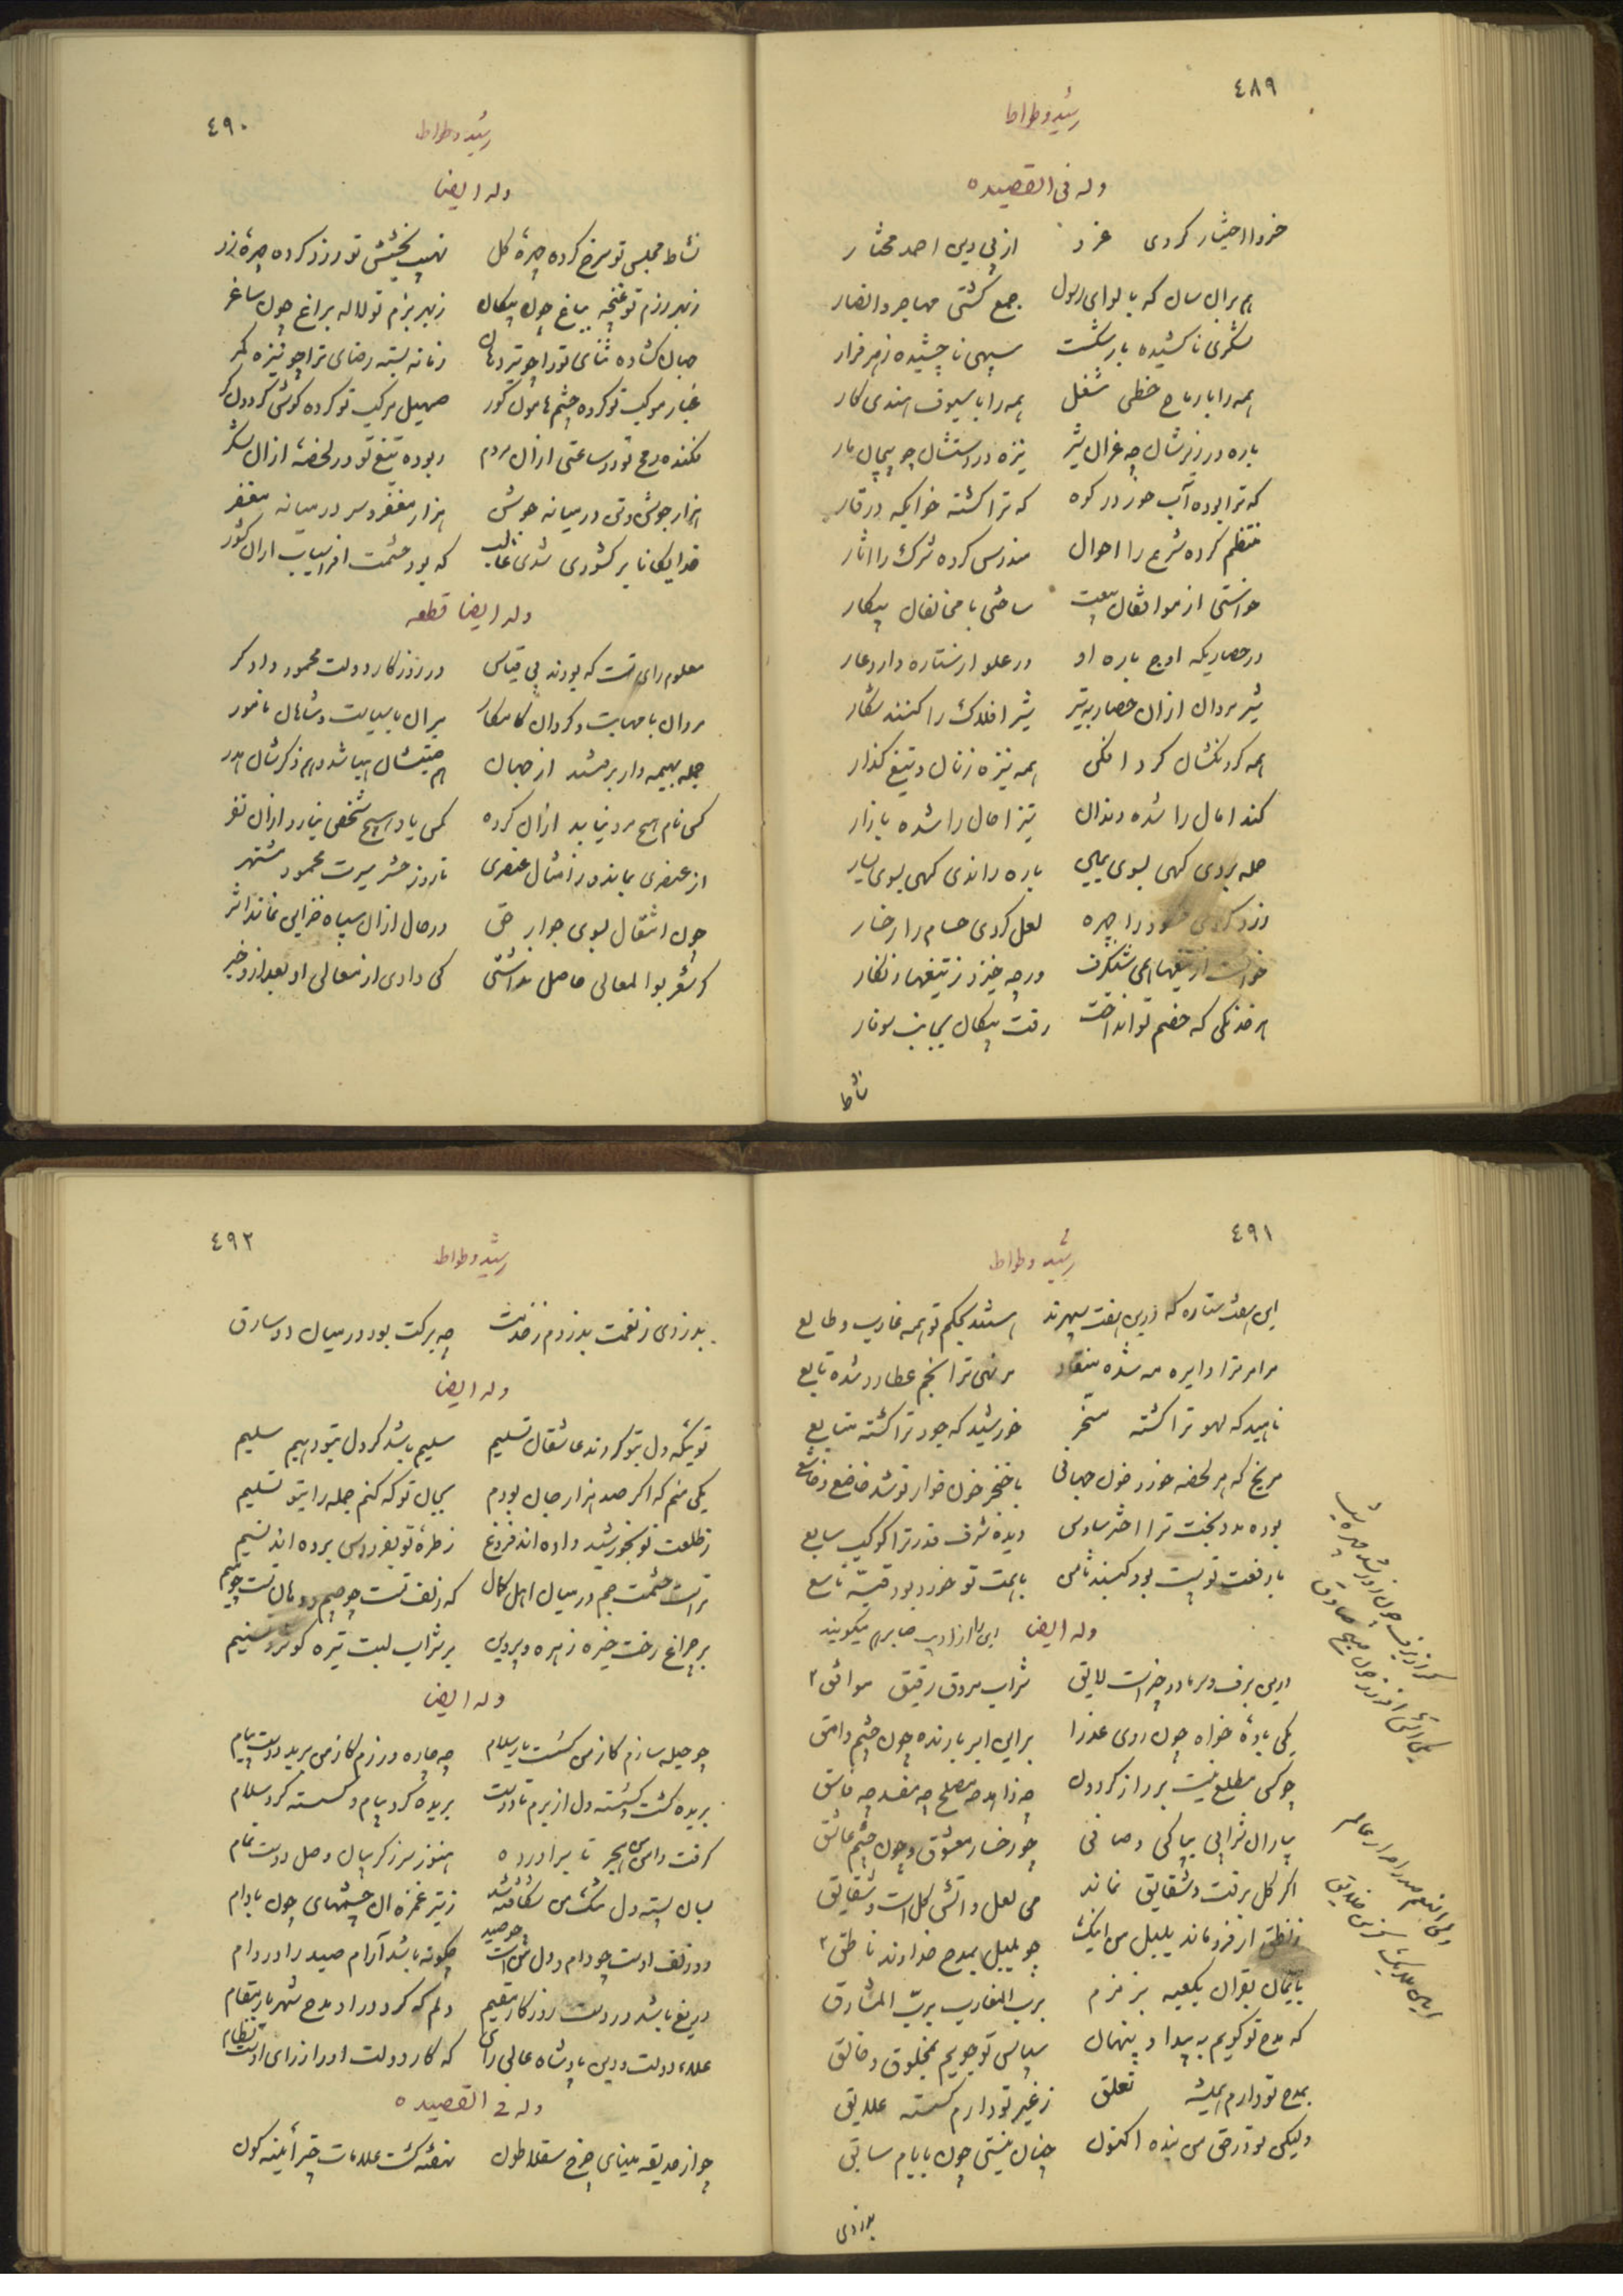 ٤٨٩
رشید وطواط
وله فی القصیده
خروا اختیار کردی غزو از پی دین احمد مختار
هم بران سان که با لوای رسول جمع گشتی مهاجر و انصار
لشکری ناکشیده بار شکست سپهی ناچشیده زهر فرار
همه را با رماح خطی شغل همه را با سیوف هندی کار
باره در زیرشان چه غران شیر نیزه در دستشان چو پیچان مار
که ترا بوده آب خور در کوه که ترا گشته خوابگه در غار
منتظم کرده شرع را احوال مندرس کرده شرک را اثار
خواستی از موافقان بیعت ساختی با مخالفان پیکار
در حصاریکه اوج باره او در علو از ستاره دارد عار
شیر مردان ازان حصار به تیر شیر افلاک را کنند شکار
همه گردنکشان گرد افکن همه نیزه زنان و تیغ گذار
کند امال را شده دندان تیز اجال را شده بازار
حمله بردی گهی بسوی یمین باره راندی گهی بسوی یسار
زرد کردی حسود را چهره لعل کردی حسام را رخسار
خواست از تیغهای شنگرف ورچه خیزد ز تیغها زنگار
هر خدنگی که خصم تو انداخت رفت پیکان بجانب سوفار
نشاط
٤٩٠
رشید وطواط
وله ایضا
نشاط مجلس تو سرخ کرده چهرهٔ گل نهیب بخشش تو زرد کرده چهرهٔ زر
زبهر رزم تو غنچه بباغ چون پیکان زبهر بزم تو لاله براغ چون ساغر
جهان گشاده ثنای تو را چو تیر دهان زمانه بسته رضای ترا چو نیزه کمر
غبار موکب تو کرده چشم هامون کور صهیل مرکب تو کرده گوش گردون کر
فکنده رمح تو در ساعتی ازان مردم ربوده تیغ تو در لحضهٔ ازان لشکر
هزار جوشن و تن در میانه جوشن هزار مغفر و سر در میانه مغفر
خدایگانا بر کشوری شدی غالب که بود حشمت افراسیاب ازان کشور
وله ایضا قطعه
معلوم رای تست که بودند بی قیاس در روزگار دولت محمود دادگر
مردان با مهابت و گردان کامکار میران با سیاست و شاهان نامور
جمله بهیمه وار برفتند از جهان هم جیتشان هبا شد و هم ذکرشان هدر
کس نام هیچ مرد نیابد ازان گروه کس یاد هیچ شخص نیارد ازان نفر
از عنصری بماند و ز امثال عنصری تا روز حشر سیرت محمود مشتهر
چون انتقال بسوی جوار حق در حال ازان سپاه خزاین نماند اثر
گر شعر بوالمعالی حاصل نداشتی کی دادی از معالی او بعد ازو خبر
٤٩١
رشید وطواط
این هفت ستاره که درین هفت سپهرند هستند بحکم تو همه غارب و طالع
مر امر ترا دایره مه شده منقاد مر نهی ترا نجم عطارد شده تابع
ناهید که لهو ترا گشته مسخر خورشید که جود ترا گشته متابع
مریخ که هر لحضه خورد خون جهانی با خنجر خون خوار تو شد خاضع و خاشع
بوده مدد بخت ترا اختر سادس دیده شرف قدر ترا کوکب سابع
با رفعت تو پست بود گنبد ثامن با همت تو خورد بود قبهٔ تاسع
وله ایضا این را از ادیب صابر هم میگویند
درین برف و سرما دو چیز است لایق شراب مروق رفیق موافق
یکی باده خواه چون روی عذرا براین ابر بارنده چون چشم وامق
چو کس مطلع نیست بر راز گردون چه زاهد چه مصلح چه مفسد چه فاسق
بیار ان شرابی بپاکی و صافی چو رخسار معشوق و چون چشم عاشق
اگر گل برفت و شقایق نماند می لعل و اتش گل است و شقایق
ز نطق ار فرو ماند بلبل من اینک چو بلبل بمدح خداوند ناطق
بایمان بقران بکعبه بزمزم برب المغارب برب المشارق
که مدح تو گویم به پیدا و پنهان سپاس تو جویم بمخلوق و خالق
بمدح تو دارم همیشه تعلق ز غیر تو دارم گسسته علایق
ولیکن تو در حق من بنده اکنون چنان نیستی چون بایام سابق
بدزدی
٤٩٢
رشید وطواط
بدزدی ز نعمت بدزدم ز خدمت چه برکت بود در میان دو سارق
وله ایضا
تو یکه دل بتو کردند عاشقان تسلیم سلیم باشد گر دل بتو دهیم سلیم
یکی منم که اگر صد هزار جان بودم بجان تو که کنم جمله را بتو تسلیم
ز طلعت تو بخورشید داده اند فروغ ز طرهٔ تو بفردوس برده اند نسیم
تراست حشمت جم در میان اهل کمال که زلف تست چو جیم و دهان تست چو میم
بر چراغ رخت خیره زهره و پروین بر شراب لبت تیره کوثر و تسنیم
وله ایضا
چو حیله سازم کز من گسست یار سلام چه چاره ورزم کز من برید دوست پیام
بریده گشت و گسسته دل از برم تا دوست بریده کرد پیام و گسسته کرد سلام
گرفت دامن من هجر تا براورده هنوز سر ز گریبان وصل دوست تمام
بسان پسته دل تنگ من شکافته شد ز تیر غمزه ان چشمهای چون بادام
دو زلف اوست چو دام و دل من است چو صید چگونه باشد آرام صید را در دام
دریغ باشد در دست روزگار مقیم دلم که گرد و را مدح شهریار مقام
علاء دولت و دین پادشاه عالی رای که کار دولت او را ز رای اوست نظام
وله فی القصیده
چو از حدیقه مینای چرخ سقلاطون نهفته گشت علامات چتر آینه گون